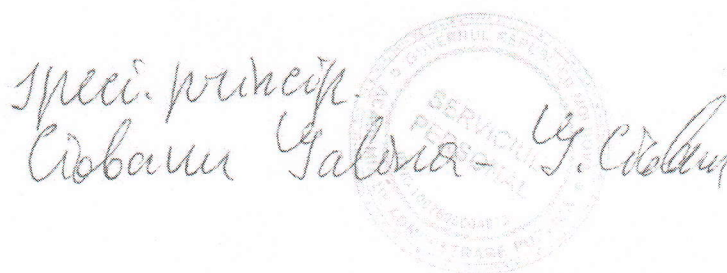 speci. princip.
Ciobanu Galina - G. Ciobanu
SERVICIUL
PERSONAL